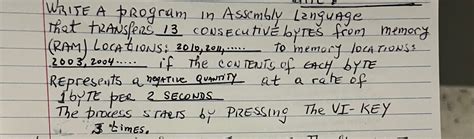 WRITE A program in Assembly Language
that transfers 13 consecutive bytes from memory
(RAM) locations: 2010, 2011,..... to memory locations:
2003, 2004..... if the contents of each byte
Represents a negative quantity at a rate of
1 byte per 2 seconds
The process starts by pressing the VI-key
3 times.